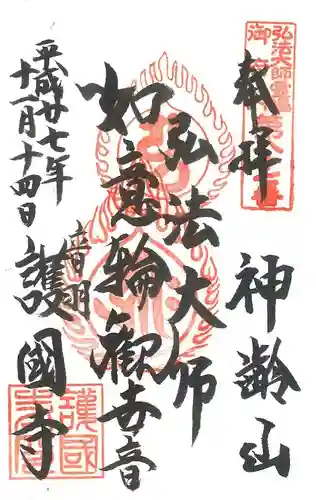 奉拝
神齢山
弘法大師
如意輪観世音
音羽
護國寺
平成廿七年
十一月十四日
弘法大師霊場
護國